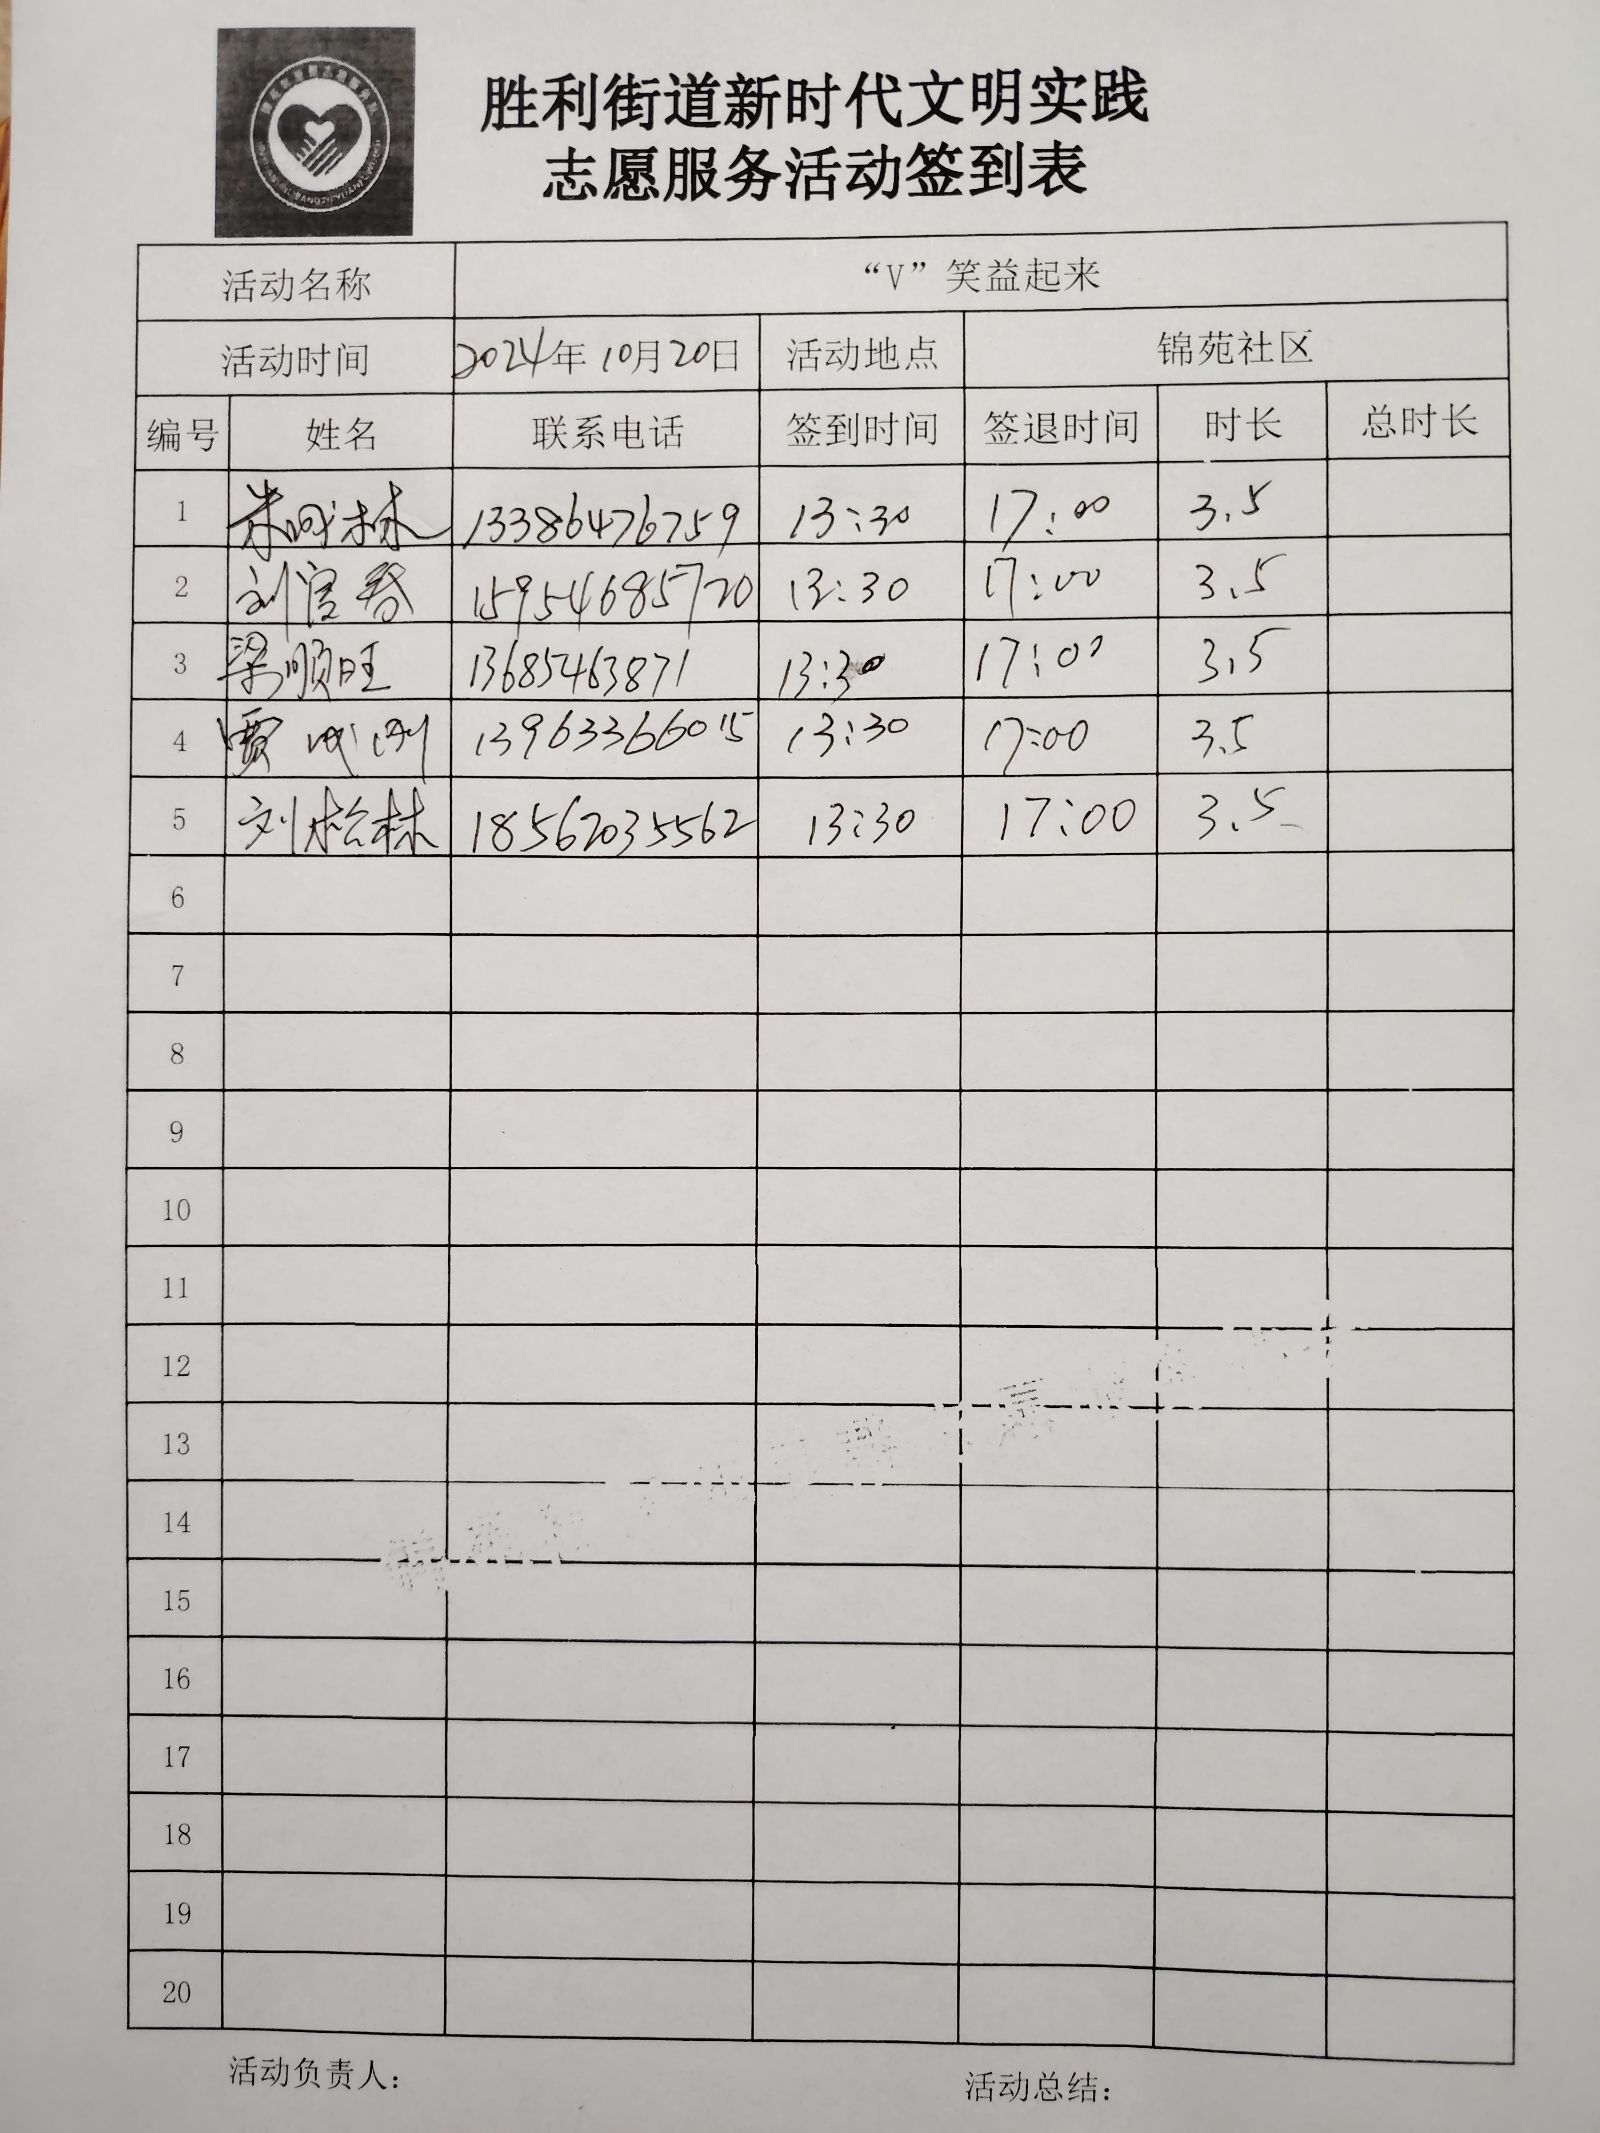 胜利街道新时代文明实践
志愿服务活动签到表
活动名称 “V”笑益起来
活动时间 2024年10月20日 活动地点 锦苑社区
编号 姓名 联系电话 签到时间 签退时间 时长 总时长
1 林 13386476759 13:30 17:00 3.5
2 刘 15954685720 13:30 17:00 3.5
3 梁顺旺 13685463871 13:30 17:00 3.5
4 贾成 13963366015 13:30 17:00 3.5
5 刘松林 18562035562 13:30 17:00 3.5
6
7
8
9
10
11
12
13
14
15
16
17
18
19
20
活动负责人: 活动总结: